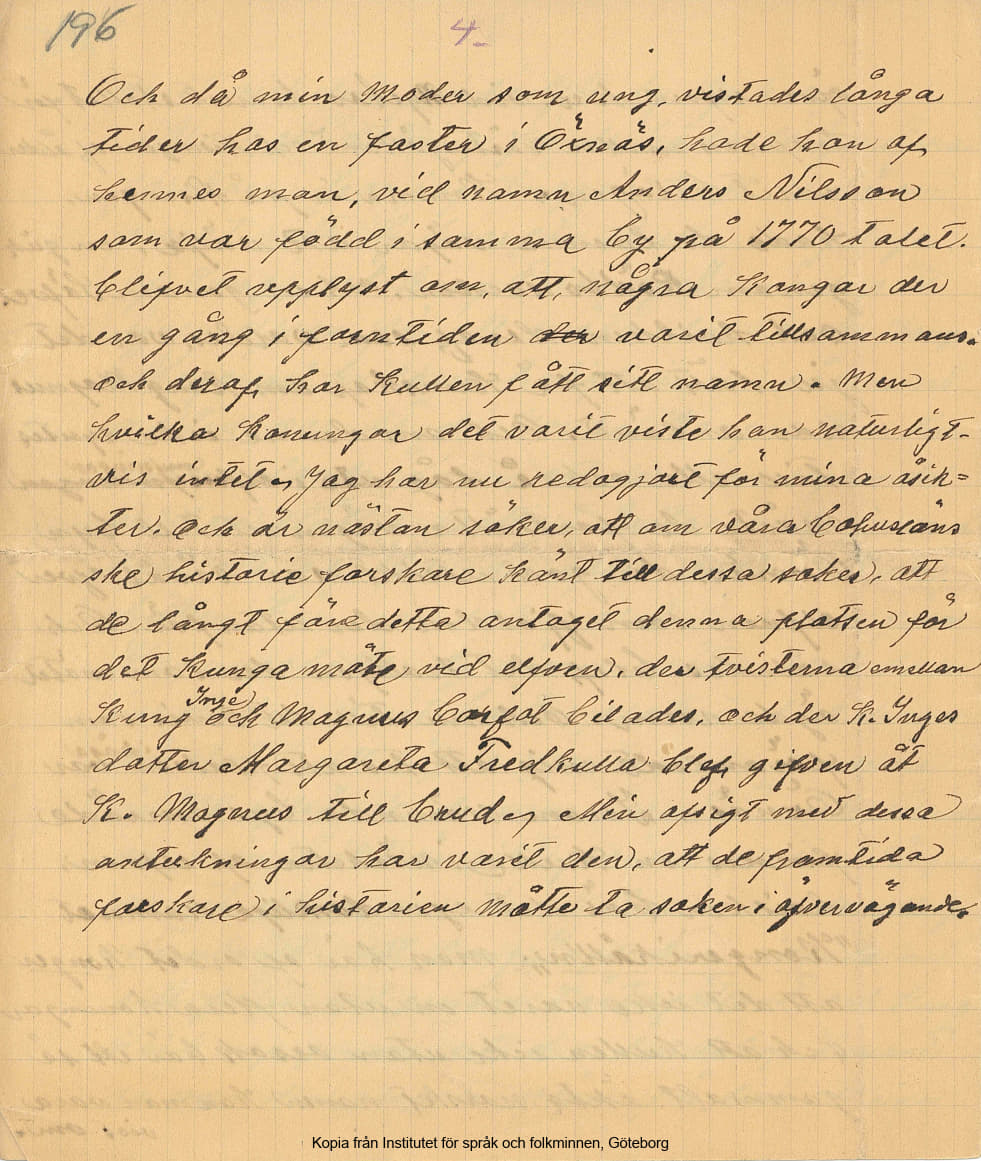 196
4.
Och då min Moder som ung, vistades långa
tider hos en faster i Öxnäs, hade hon af
hennes man, vid namn Anders Nilsson
som var född i samma by på 1770 talet.
blifvet upplyst om, att, några Kongar der
en gång i forntiden der varit tillsammans.
och deraf har Kullen fått sitt namn. Men
hvilka Konungar det varit viste han naturligt-
vis intet, Jag har nu redogjort för mina åsik=
ter. och är nästan säker, att om våra Bohusläns
ske historie forskare känt till dessa saker, att
de långt före detta antaget denna platsen för
det Kunga möte vid elfven, der tvisterna emellan
Kung Inge och Magnus Barfot bilades, och der K. Inges
dotter Margareta Fredkulla blef gifven åt
K. Magnus till brud, Min afsigt med dessa
anteckningar har varit den, att de framtida
forskare i historien måtte ta saken i öfvervägande.
Kopia från Institutet för språk och folkminnen, Göteborg